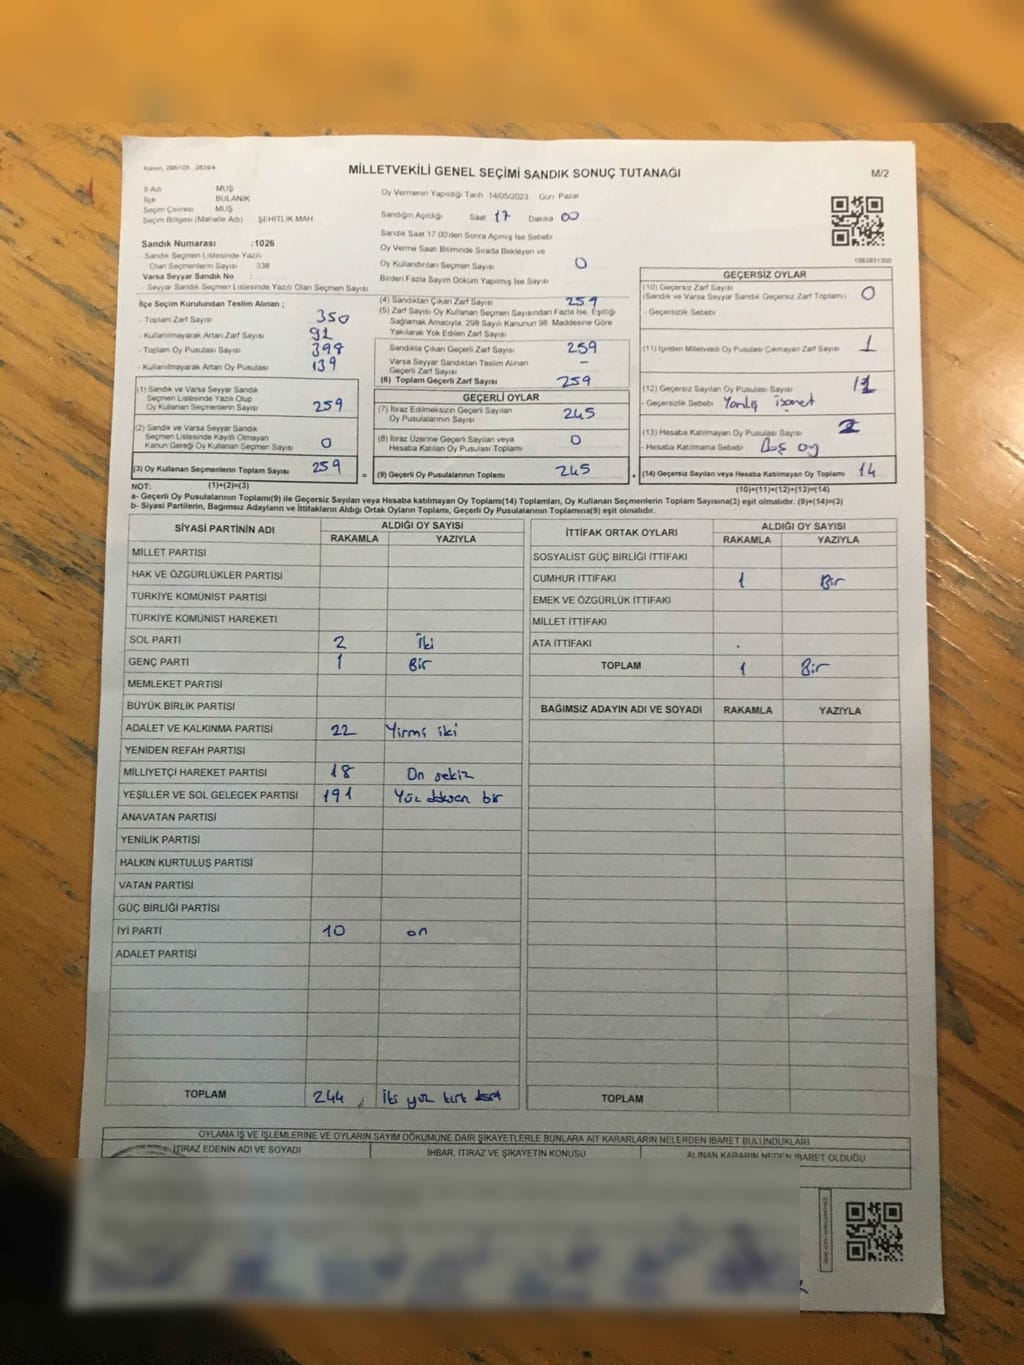 Kanun, 298/105 , 2839/4
MİLLETVEKİLİ GENEL SEÇİMİ SANDIK SONUÇ TUTANAĞI
M/2
İl Adı MUŞ
İlçe BULANIK
Seçim Çevresi MUŞ
Seçim Bölgesi (Mahalle Adı) ŞEHİTLİK MAH
Oy Vermenin Yapıldığı Tarih 14/05/2023 Gün Pazar
Sandığın Açıldığı Saat 17 Dakika 00
Sandık Saat 17.00'den Sonra Açılmış İse Sebebi
Oy Verme Saati Bitiminde Sırada Bekleyen ve
Oy Kullandırılan Seçmen Sayısı 0
Birden Fazla Sayım Döküm Yapılmış İse Sayısı
Sandık Numarası :1026
- Sandık Seçmen Listesinde Yazılı
Olan Seçmenlerin Sayısı 338
Varsa Seyyar Sandık No :
- Seyyar Sandık Seçmen Listesinde Yazılı Olan Seçmen Sayısı
İlçe Seçim Kurulundan Teslim Alınan ;
- Toplam Zarf Sayısı 350
- Kullanılmayarak Artan Zarf Sayısı 91
- Toplam Oy Pusulası Sayısı
- Kullanılmayarak Artan Oy Pusulası 139
(1) Sandık ve Varsa Seyyar Sandık
Seçmen Listesinde Yazılı Olup
Oy Kullanan Seçmenlerin Sayısı 259
(2) Sandık ve Varsa Seyyar Sandık
Seçmen Listesinde Kayıtlı Olmayan
Kanun Gereği Oy Kullanan Seçmen Sayısı 0
(3) Oy Kullanan Seçmenlerin Toplam Sayısı 259
(1)+(2)=(3)
(4) Sandıktan Çıkan Zarf Sayısı 259
(5) Zarf Sayısı Oy Kullanan Seçmen Sayısından Fazla İse, Eşitliği
Sağlamak Amacıyla, 298 Sayılı Kanunun 98. Maddesine Göre
Yakılarak Yok Edilen Zarf Sayısı
Sandıkta Çıkan Geçerli Zarf Sayısı 259
Varsa Seyyar Sandıktan Teslim Alınan
Geçerli Zarf Sayısı -
(6) Toplam Geçerli Zarf Sayısı 259
GEÇERLİ OYLAR
(7) İtiraz Edilmeksizin Geçerli Sayılan
Oy Pusulalarının Sayısı 245
(8) İtiraz Üzerine Geçerli Sayılan veya
Hesaba Katılan Oy Pusulası Toplamı 0
= (9) Geçerli Oy Pusulalarının Toplamı 245
1083851300
GEÇERSİZ OYLAR
(10) Geçersiz Zarf Sayısı
(Sandık ve Varsa Seyyar Sandık Geçersiz Zarf Toplamı) 0
- Geçersizlik Sebebi
(11) İçinden Milletvekili Oy Pusulası Çıkmayan Zarf Sayısı 1
(12) Geçersiz Sayılan Oy Pusulası Sayısı 11
- Geçersizlik Sebebi Yanlış işaret
(13) Hesaba Katılmayan Oy Pusulası Sayısı 2
- Hesaba Katılmama Sebebi Boş oy
+ (14) Geçersiz Sayılan veya Hesaba Katılmayan Oy Toplamı 14
(10)+(11)+(12)+(13)=(14)
NOT:
a- Geçerli Oy Pusulaları Toplamı(9) ile Geçersiz Sayılan veya Hesaba katılmayan Oy Toplamı(14) Toplamları, Oy Kullanan Seçmenlerin Toplam Sayısına(3) eşit olmalıdır. (9)+(14)=(3)
b- Siyasi Partilerin, Bağımsız Adayların ve İttifakların Aldığı Ortak Oyların Toplamı, Geçerli Oy Pusulalarının Toplamına(9) eşit olmalıdır.
SİYASİ PARTİNİN ADI ALDIĞI OY SAYISI
RAKAMLA YAZIYLA
MİLLET PARTİSİ
HAK VE ÖZGÜRLÜKLER PARTİSİ
TÜRKİYE KOMÜNİST PARTİSİ
TÜRKİYE KOMÜNİST HAREKETİ
SOL PARTİ 2 İki
GENÇ PARTİ 1 Bir
MEMLEKET PARTİSİ
BÜYÜK BİRLİK PARTİSİ
ADALET VE KALKINMA PARTİSİ 22 Yirmi iki
YENİDEN REFAH PARTİSİ
MİLLİYETÇİ HAREKET PARTİSİ 18 On sekiz
YEŞİLLER VE SOL GELECEK PARTİSİ 191 Yüz doksan bir
ANAVATAN PARTİSİ
YENİLİK PARTİSİ
HALKIN KURTULUŞ PARTİSİ
VATAN PARTİSİ
GÜÇ BİRLİĞİ PARTİSİ
İYİ PARTİ 10 on
ADALET PARTİSİ
TOPLAM 244 İki yüz kırk dört
İTTİFAK ORTAK OYLARI ALDIĞI OY SAYISI
RAKAMLA YAZIYLA
SOSYALİST GÜÇ BİRLİĞİ İTTİFAKI
CUMHUR İTTİFAKI 1 Bir
EMEK VE ÖZGÜRLÜK İTTİFAKI
MİLLET İTTİFAKI
ATA İTTİFAKI
TOPLAM 1 Bir
BAĞIMSIZ ADAYIN ADI VE SOYADI RAKAMLA YAZIYLA
TOPLAM
OYLAMA İŞ VE İŞLEMLERİNE VE OYLARIN SAYIM DÖKÜMÜNE DAİR ŞİKAYETLERLE BUNLARA AİT KARARLARIN NELERDEN İBARET BULUNDUKLARI
İTİRAZ EDENİN ADI VE SOYADI İHBAR, İTİRAZ VE ŞİKAYETİN KONUSU ALINAN KARARIN NEDEN İBARET OLDUĞU